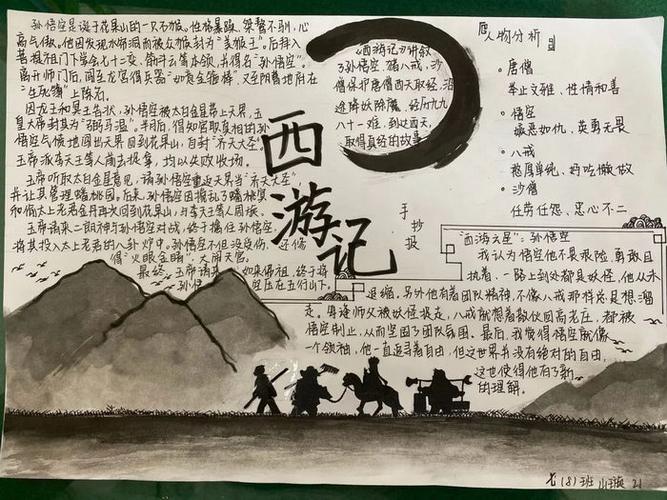 孙悟空是诞于花果山的一只石猴。性格暴躁、桀骜不驯,心
高气傲。他因发现水帘洞而被众猴封为“美猴王”。后拜入
菩提祖师门下学会七十二变、筋斗云等本领,并得名“孙悟空”。
离开师门后,闯至龙宫借兵器“如意金箍棒”,又至阴曹地府在
“生死簿”上除名。
因龙王和冥王告状,孙悟空被太白金星带上天界,玉
皇大帝封其为“弼马温”。半月后,得知官职真相的孙
悟空气愤地回出天界回到花果山,自封“齐天大圣”
玉帝派李天王等人前去捉拿,均以失败收场。
玉帝听取太白金星意见,请孙悟空重返天界当“齐天大圣”
并让其管理蟠桃园。后来,孙悟空因搅乱了蟠桃
和偷太上老君金丹再次回到花果山,与李天王等人周旋。
玉帝请来二郎神与孙悟空对战,终于擒住孙悟空,
将其投入太上老君的八卦炉中。孙悟空不但没受伤,还借
得“火眼金睛”,大闹天宫。
最终,玉帝请 如来佛祖,终于将
孙悟 空压在五行山下。
《西游记》讲叙
了孙悟空、猪八戒、沙
僧保护唐僧西天取经,沿
途降妖除魔,经历九九
八十一难,到达西天,
取得真经的故事
西游记
手抄报
人物分析
· 唐僧
举止文雅、性情和善
· 悟空
嫉恶如仇、英勇无畏
· 八戒
憨厚单纯、好吃懒做
· 沙僧
任劳任怨、忠心不二
“西游之星”:孙悟空
我认为悟空他不畏艰险、勇敢且
执着,一路上到处都是妖怪,他从未
退缩。另外他有着团队精神,不像八戒那样总是想溜
走。每逢师父被妖怪捉走,八戒就想着散伙回高老庄,都被
悟空制止,从而坚固了团队氛围。最后,我觉得悟空就像
一个领袖,他一直追寻着自由,但这世界并没有绝对的自由,
这也使得他有了新
的理解。
七(8)班 山璇 21